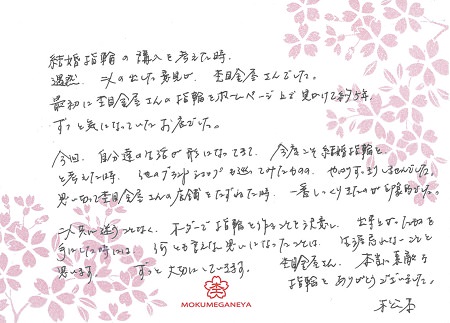 結婚指輪の購入を考えた時、
偶然、二人の出した意見が、杢目金屋さんでした。
最初に杢目金屋さんの指輪をホームページ上で見かけて約5年、
ずっと気になっていたお店でした。
今回、自分達の生活が形になってきて、今度こそ結婚指輪を
と考えた時、他のブランドショップも巡ってみたものの、やはりすっきりしませんでした。
思い切って杢目金屋さんの店舗をたずねた時、一番しっくりきたのが印象的でした。
二人共に迷うことなく、オーダーで指輪を作ることを決意し、出来上がったものを
手にした時には、何とも言えない思いになったことは、生涯忘れないことと
思います。ずっと大切にしていきます。
杢目金屋さん、本当に素敵な
指輪をありがとうございました。
MOKUMEGANEYA